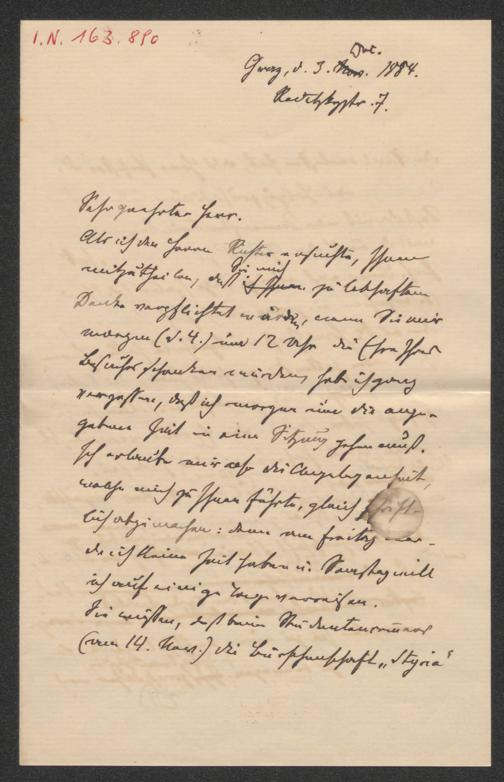 I.N. 163.890
Dec.
Graz, d. 3. Nov. 1884.
Radetzkystr. 7.
Sehr geehrter Herr.
Als ich den Herrn ersuchte, Ihnen
mitzutheilen, daß Sie mich zu lebhaftem
Danke verpflichten würden, wenn Sie mir
morgen (d. 4.) um 12 Uhr die Ehre Ihres
Besuches schenken würden, hab ich ganz
vergessen, daß ich morgen um die ange-
gebene Zeit in eine Sitzung gehen muß.
Ich erlaube mir also die Angelegenheit,
welche mich zu Ihnen führte, gleich schrift-
lich abzumachen: denn am Freitag wer-
de ich keine Zeit haben u. Samstag will
ich auf einige Tage verreisen.
Sie wissen, daß beim Studentencommers
(am 14. Nov.) die Burschenschaft „Styria"